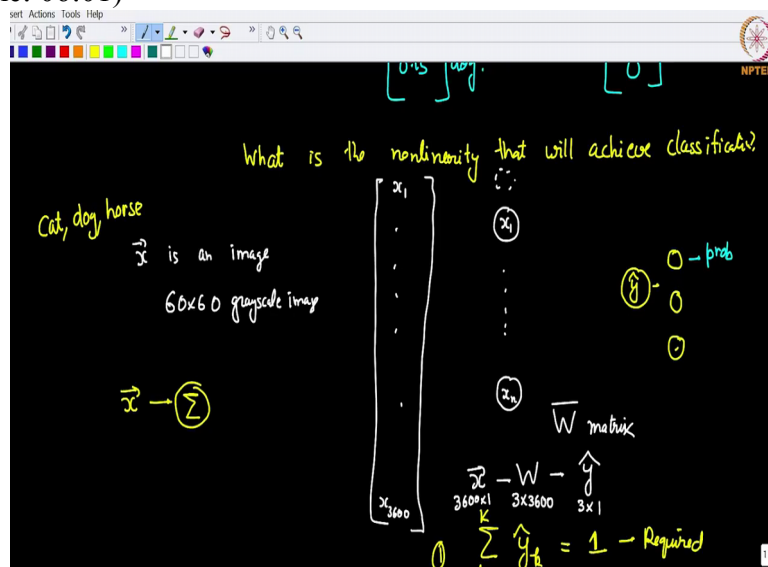 sert Actions Tools Help
NPTEL
0.15 dog.
0
What is the nonlinearity that will achieve classification?
Cat, dog, horse
x is an image
60x60 grayscale image
x → Σ
x1
x3600
x1
xn
ŷ - 0 - prob
0
0
W matrix
x - W - ŷ
3600x1 3x3600 3x1
① K Σ ŷk = 1 - Required
1